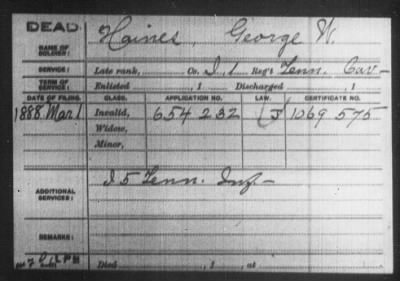 DEAD
NAME OF SOLDIER: Haines, George W.
SERVICE: Late rank, Co. I, 1 Reg't Tenn. Cav
TERM OF SERVICE: Enlisted , 1 Discharged , 1
DATE OF FILING. CLASS. APPLICATION NO. LAW. CERTIFICATE NO.
1888 Mar 1 Invalid, 654 232 J 1069 575
Widow,
Minor,
ADDITIONAL SERVICES: I 5 Tenn. Inf.
REMARKS:
Died , 1 , at